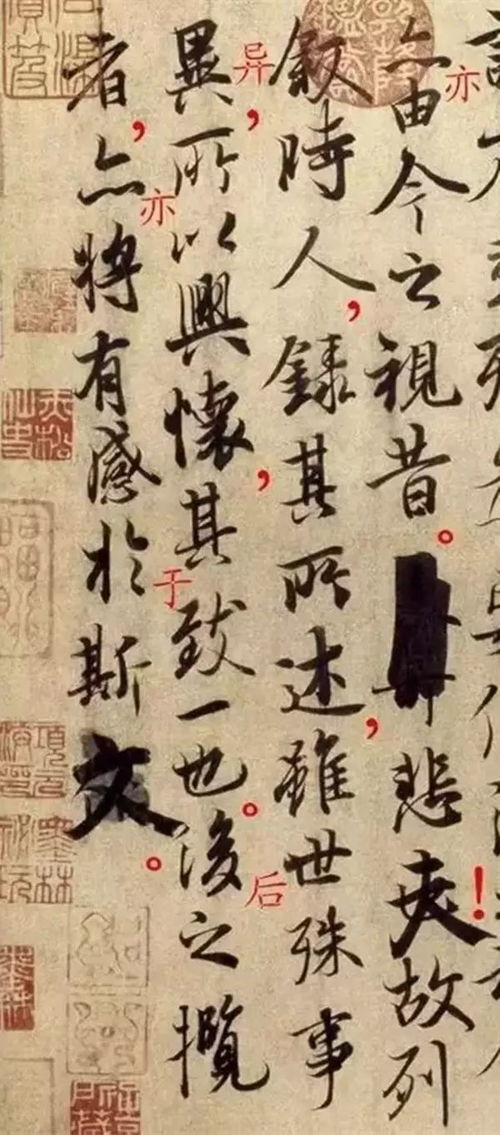 亦由今之視昔。悲夫！故列
亦
敘時人，錄其所述，雖世殊事
異，所以興懷，其致一也。後之攬
异
后
者，亦將有感於斯文。
亦
于